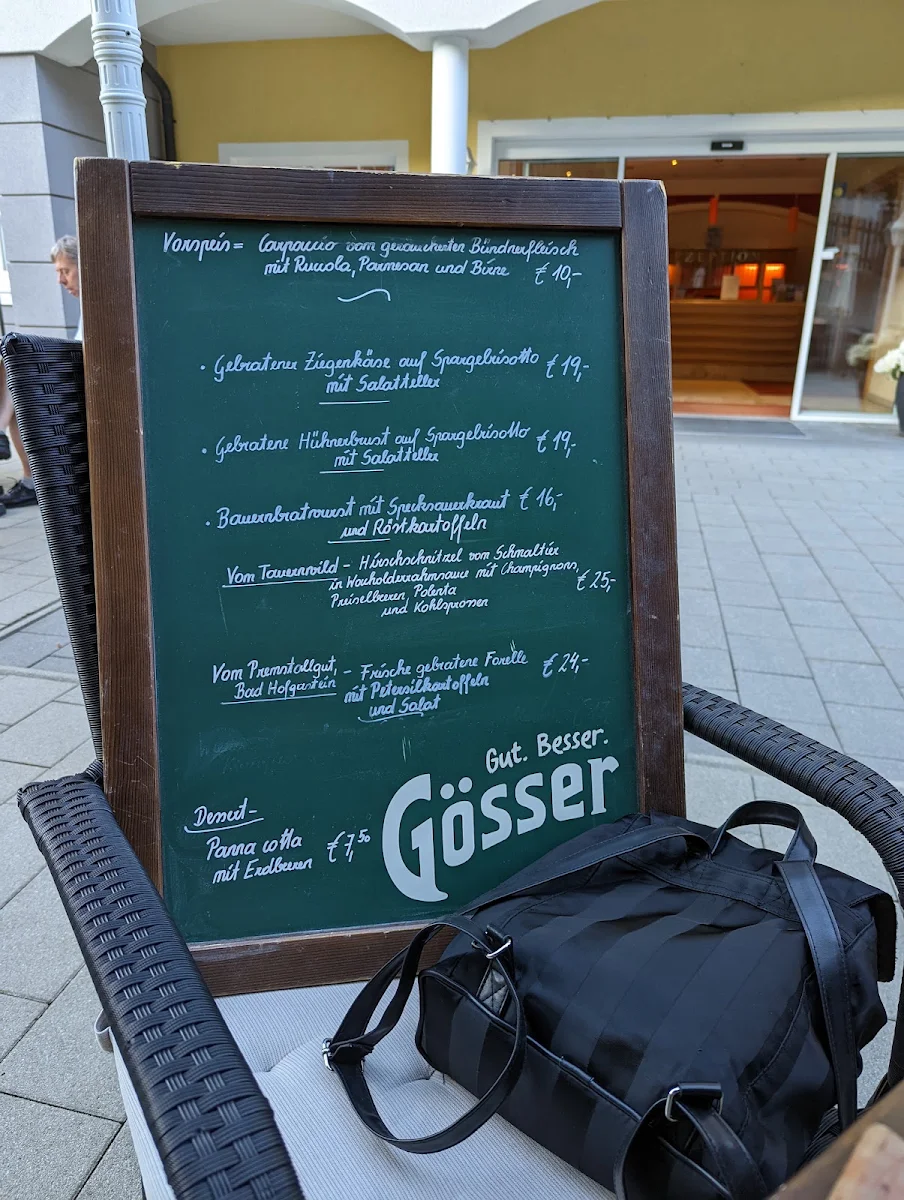 Vorspeis = Carpaccio vom geräucherten Bündnerfleisch
mit Rucola, Parmesan und Birne € 10,-
· Gebratener Ziegenkäse auf Spargelrisotto € 19,-
mit Salatteller
· Gebratene Hühnerbrust auf Spargelrisotto € 19,-
mit Salatteller
· Bauernbratwurst mit Specksauerkraut € 16,-
und Röstkartoffeln
Vom Tauernwild - Hirschschnitzel vom Schmaltier
in Wacholderrahmsauce mit Champignons,
Preiselbeeren, Polenta € 25,-
und Kohlsprossen
Vom Premstallgut, - Frische gebratene Forelle € 24,-
Bad Hofgastein mit Petersilkartoffeln
und Salat
Gut. Besser.
Gösser
Dessert-
Panna cotta € 7,50
mit Erdbeeren